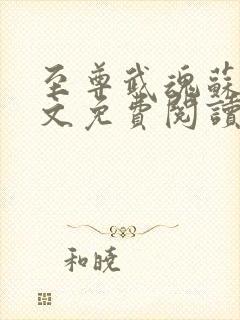 至尊武魂蘇
文免費閱讀
和曉